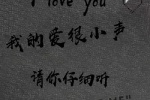 I love you
我的爱很小声
请你仔细听